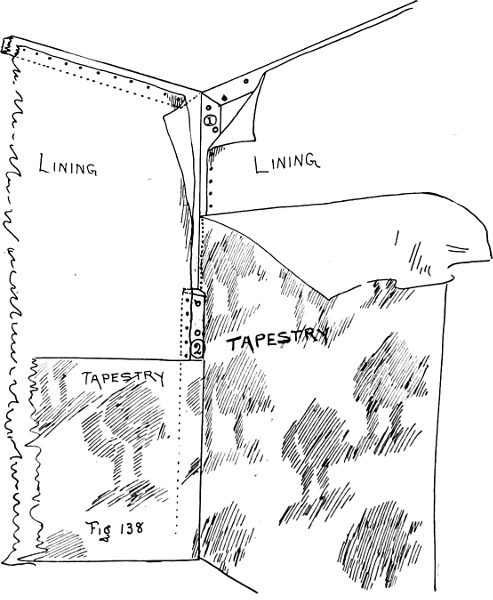 1
LINING
LINING
2
TAPESTRY
TAPESTRY
Fig 138